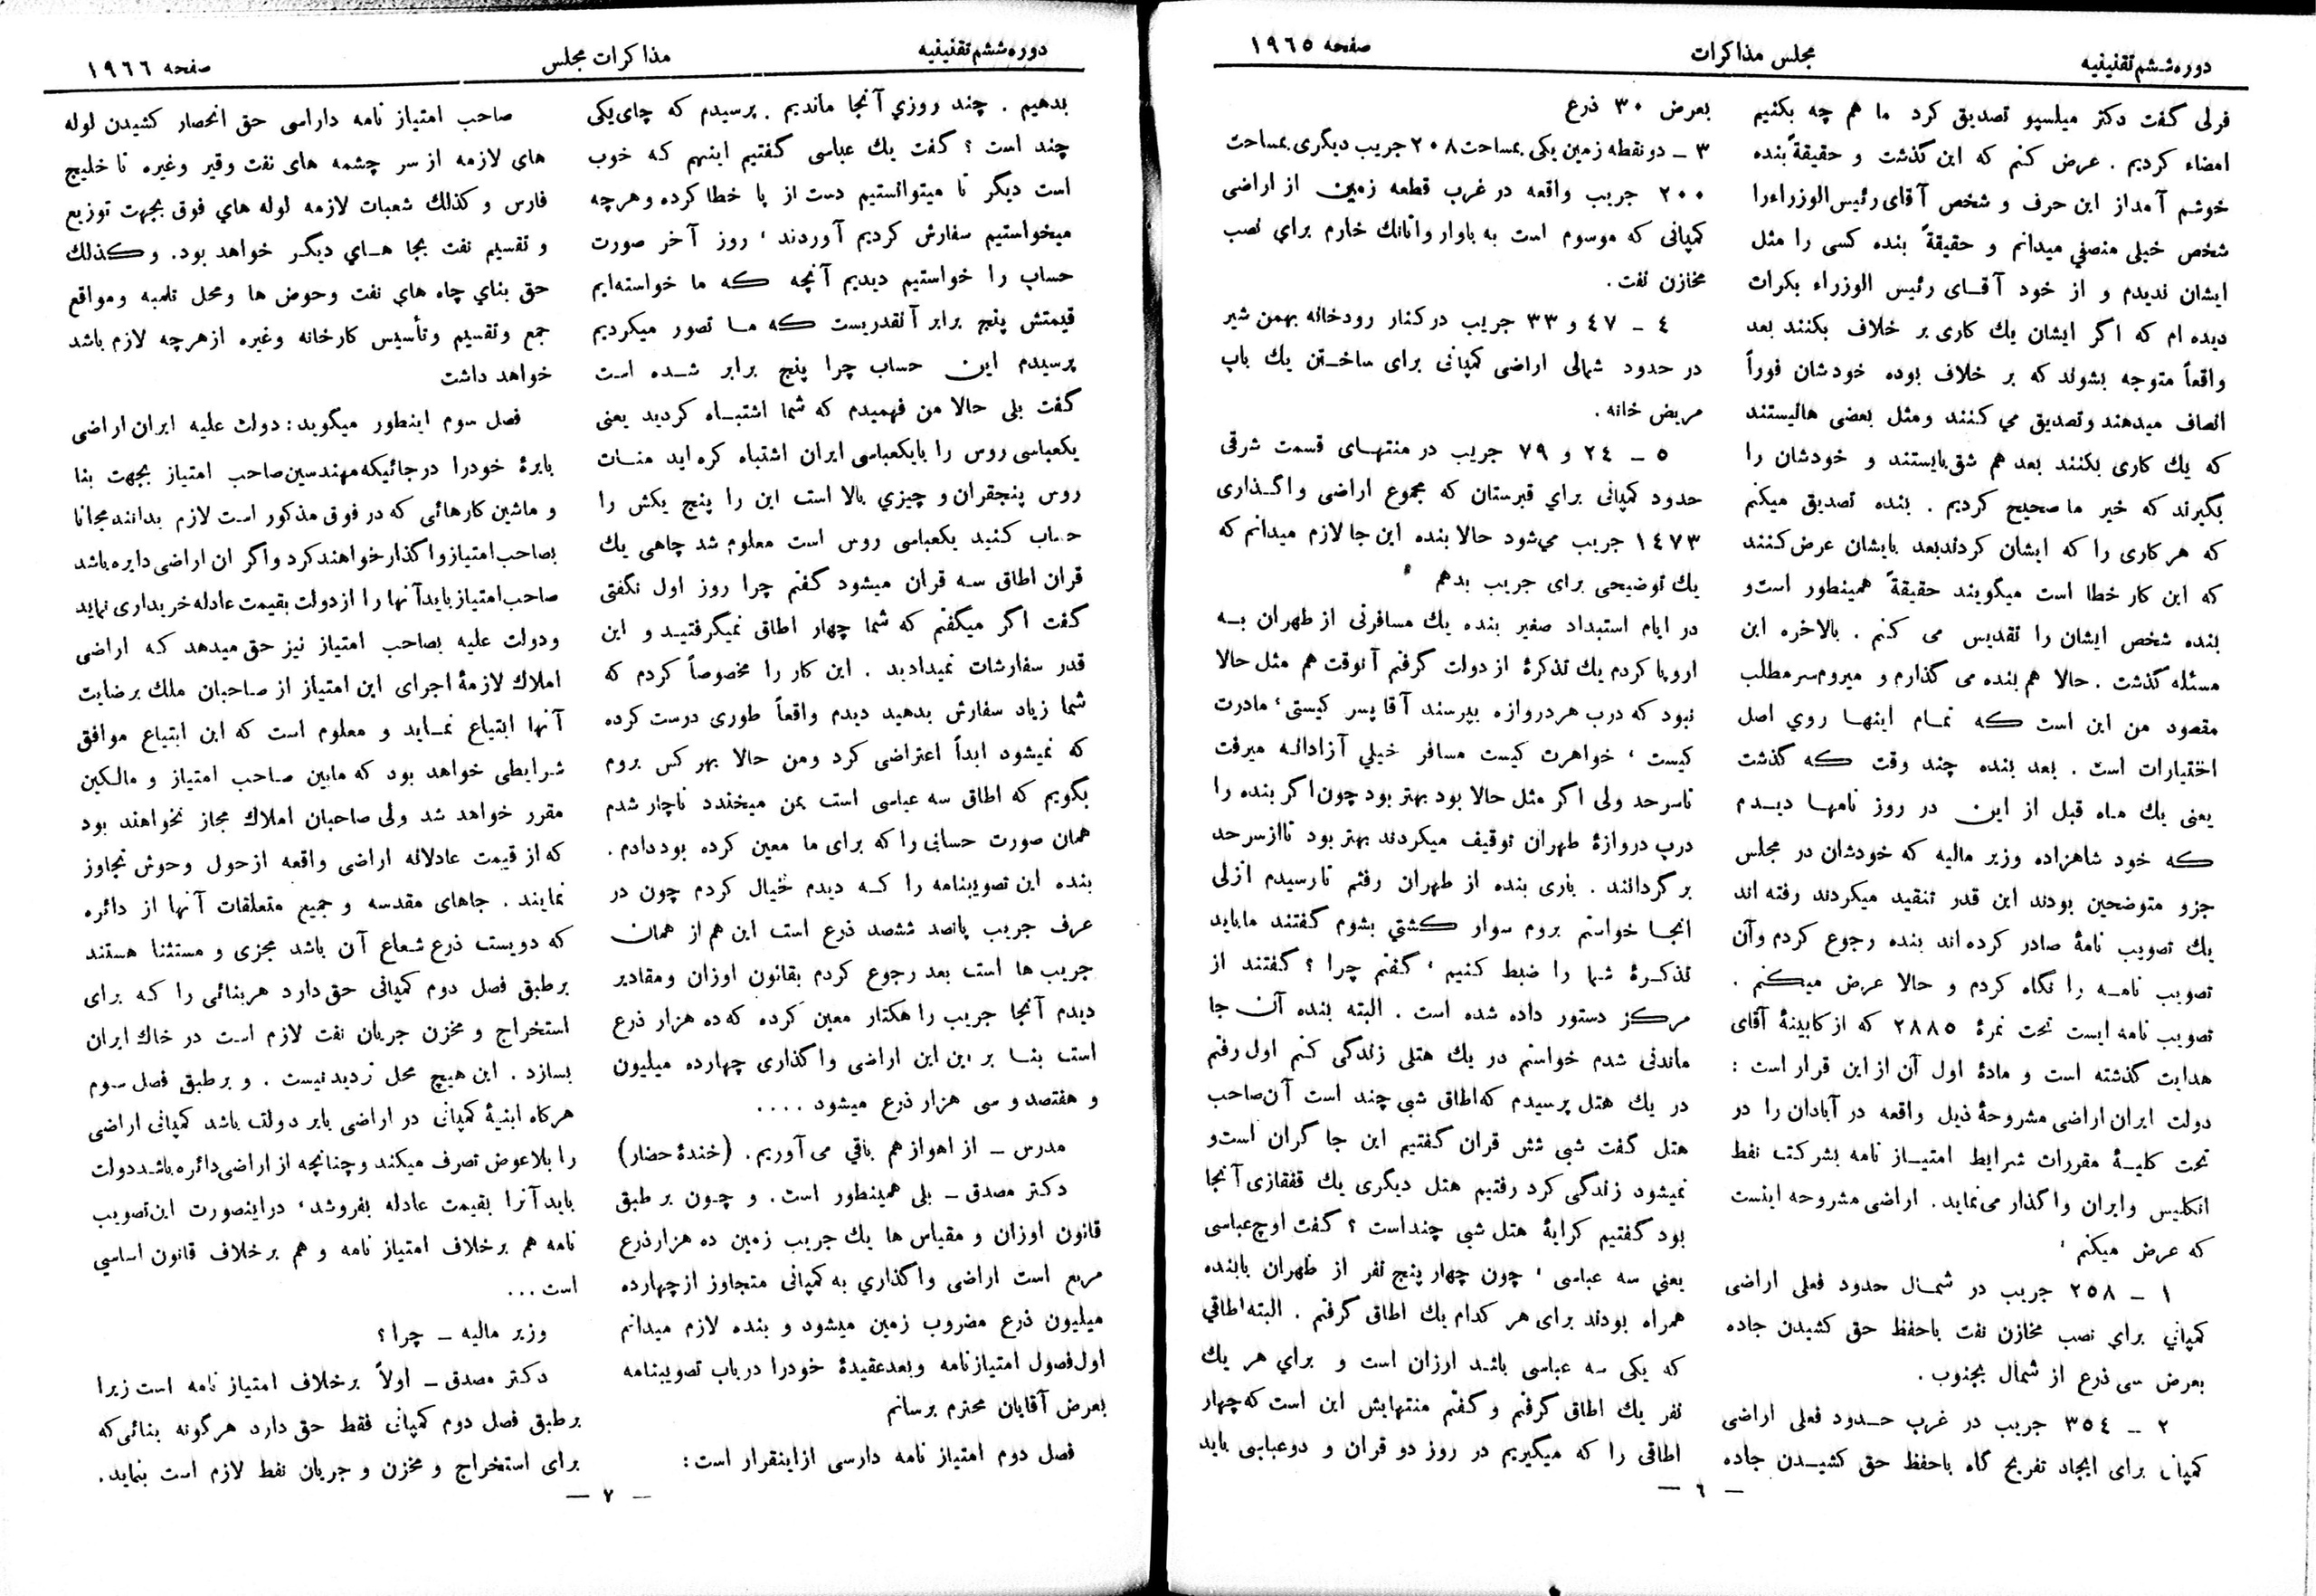 دوره ششم تقنینیه
مجلس مذاکرات
صفحه ۱۹۶۵
فرلی گفت دکتر میلسپو تصدیق کرد ما هم چه بکنیم
امضاء کردیم . عرض کنم که این گذشت و حقیقةً بنده
خوشم آمد از این حرف و شخص آقای رئیس الوزراء را
شخص خیلی منصفي میدانم و حقیقةً بنده کسی را مثل
ایشان ندیدم و از خود آقای رئیس الوزراء بکرات
دیده ام که اگر ایشان یك کاری بر خلاف بکنند بعد
واقعاً متوجه بشوند که بر خلاف بوده خودشان فوراً
انصاف میدهند و تصدیق مي کنند ومثل بعضی ها نیستند
که یك کاری بکنند بعد هم شق بایستند و خودشان را
بگیرند که خیر ما صحیح کردیم . بنده تصدیق میکنم
که هر کاری را که ایشان کردند بعد بایشان عرض کنند
که این کار خطا است میگویند حقیقةً همینطور است و
بنده شخص ایشان را تقدیس می کنم . بالاخره این
مسئله گذشت . حالا هم بنده می گذارم و میروم سر مطلب
مقصود من این است که تمام اینها روي اصل
اختیارات است . بعد بنده چند وقت که گذشت
یعنی یك ماه قبل از این در روز نامها دیدم
که خود شاهزاده وزیر مالیه که خودشان در مجلس
جزو متوضحین بودند این قدر تنقید میکردند رفته اند
یك تصویب نامهٔ صادر کرده اند بنده رجوع کردم و آن
تصویب نامه را نگاه کردم و حالا عرض میکنم .
تصویب نامه ایست تحت نمرهٔ ۲۸۸۵ که از کابینهٔ آقای
هدایت گذشته است و مادهٔ اول آن از این قرار است :
دولت ایران اراضی مشروحهٔ ذیل واقعه در آبادان را در
تحت کلیهٔ مقررات شرایط امتیاز نامه بشرکت نفط
انکلیس وایران واگذار می نماید . اراضی مشروحه اینست
که عرض میکنم ،
۱ ــ ۲۵۸ جریب در شمال حدود فعلی اراضی
کمپاني براي نصب مخازن نفت باحفظ حق کشیدن جاده
بعرض سی ذرع از شمال بجنوب .
۲ ــ ۳۵٤ جریب در غرب حدود فعلی اراضی
کمپانی برای ایجاد تفریح گاه باحفظ حق کشیدن جاده
بعرض ۳۰ ذرع
۳ ــ دو نقطه زمین یکی بمساحت ۲۰۸ جریب دیگری بمساحت
۲۰۰ جریب واقعه در غرب قطعه زمین از اراضی
کمپانی که موسوم است به باوار واتانك خارم براي نصب
مخازن نفت .
٤ ــ ٤۷ و ۳۳ جریب در کنار رودخانه بهمن شیر
در حدود شمالی اراضی کمپانی برای ساختن یك باب
مریض خانه .
۵ ــ ۲٤ و ۷۹ جریب در منتهای قسمت شرقی
حدود کمپانی براي قبرستان که مجموع اراضی واگذاری
۱٤۷۳ جریب می‌شود حالا بنده این جا لازم میدانم که
یك توضیحی برای جریب بدهم
در ایام استبداد صغیر بنده یك مسافرتی از طهران به
اروپا کردم یك تذکرهٔ از دولت گرفتم آنوقت هم مثل حالا
نبود که درب هر دروازه بپرسند آقا پسر کیستی ، مادرت
کیست ، خواهرت کیست مسافر خیلي آزادانه میرفت
تا سر حد ولی اگر مثل حالا بود بهتر بود چون اگر بنده را
درب دروازهٔ طهران توقیف میکردند بهتر بود تا از سر حد
بر گردانند . باری بنده از طهران رفتم تا رسیدم انزلی
انجا خواستم بروم سوار کشتي بشوم گفتند ما باید
تذکرهٔ شما را ضبط کنیم ، گفتم چرا ؟ گفتند از
مرکز دستور داده شده است . البته بنده آن جا
ماندنی شدم خواستم در یك هتلی زندگی کنم اول رفتم
در یك هتل پرسیدم که اطاق شبی چند است آن صاحب
هتل گفت شبی شش قران گفتیم این جا گران است و
نمیشود زندگی کرد رفتیم هتل دیگری یك قفقازی آنجا
بود گفتیم کرایهٔ هتل شبی چند است ؟ گفت اوچ عباسی
یعني سه عباسی ، چون چهار پنج نفر از طهران با بنده
همراه بودند برای هر کدام یك اطاق گرفتم . البته اطاقي
که یکی سه عباسی باشد ارزان است و براي هر یك
نفر یك اطاق گرفتم و گفتم منتهایش این است که چهار
اطاقی را که میگیریم در روز دو قران و دو عباسی باید
— ٦ —
دوره ششم تقنینیه
مذاکرات مجلس
صفحه ۱۹٦٦
بدهیم . چند روزي آنجا ماندیم . پرسیدم که چای یکی
چند است ؟ گفت یك عباسی گفتیم اینهم که خوب
است دیگر تا میتوانستیم دست از پا خطا کرده و هرچه
میخواستیم سفارش کردیم آوردند ، روز آخر صورت
حساب را خواستیم دیدیم آنچه که ما خواسته‌ایم
قیمتش پنج برابر آنقدریست که ما تصور میکردیم
پرسیدم این حساب چرا پنج برابر شده است
گفت بلی حالا من فهمیدم که شما اشتباه کردید یعنی
یکعباسی روس را با یکعباسی ایران اشتباه کره اید منات
روس پنجقران و چیزي بالا است این را پنج یکش را
حساب کنید یکعباسی روس است معلوم شد چاهی یك
قران اطاق سه قران میشود گفتم چرا روز اول نگفتی
گفت اگر میگفتم که شما چهار اطاق نمیگرفتید و این
قدر سفارشات نمیدادید . این کار را مخصوصاً کردم که
شما زیاد سفارش بدهید دیدم واقعاً طوری درست کرده
که نمیشود ابداً اعتراضی کرد ومن حالا بهر کس بروم
بگویم که اطاق سه عباسی است بمن میخندد ناچار شدم
همان صورت حسابی را که برای ما معین کرده بود دادم .
بنده این تصویبنامه را که دیدم خیال کردم چون در
عرف جریب پانصد ششصد ذرع است این هم از همان
جریب ها است بعد رجوع کردم بقانون اوزان ومقادیر
دیدم آنجا جریب را هکتار معین کرده که ده هزار ذرع
است بنا بر این این اراضی واگذاری چهارده میلیون
و هفتصد و سی هزار ذرع میشود ....
مدرس ــ از اهواز هم باقي می آوریم . (خندهٔ حضار)
دکتر مصدق ــ بلی همینطور است . و چون بر طبق
قانون اوزان و مقیاس ها یك جریب زمین ده هزار ذرع
مربع است اراضی واگذاري به کمپانی متجاوز از چهارده
میلیون ذرع مضروب زمین میشود و بنده لازم میدانم
اول فصول امتیاز نامه وبعد عقیدهٔ خود را در باب تصویبنامه
بعرض آقایان محترم برسانم
فصل دوم امتیاز نامه دارسی از اینقرار است :
صاحب امتیاز نامه داراسی حق انحصار کشیدن لوله
های لازمه از سر چشمه های نفت وقیر وغیره تا خلیج
فارس و کذلك شعبات لازمه لوله هاي فوق بجهت توزیع
و تقسیم نفت بجا هاي دیگر خواهد بود . و کذلك
حق بناي چاه هاي نفت وحوض ها ومحل تلمبه ومواقع
جمع وتقسیم وتأسیس کارخانه وغیره از هرچه لازم باشد
خواهد داشت
فصل سوم اینطور میگوید : دولت علیه ایران اراضی
بایرهٔ خود را در جائیکه مهندسین صاحب امتیاز بجهت بنا
و ماشین کارهائی که در فوق مذکور است لازم بدانند مجانا
بصاحب امتیاز واگذار خواهند کرد واگر ان اراضی دایره باشد
صاحب امتیاز باید آنها را از دولت بقیمت عادله خریداری نماید
ودولت علیه بصاحب امتیاز نیز حق میدهد که اراضی
املاك لازمهٔ اجرای این امتیاز از صاحبان ملك برضایت
آنها ابتیاع نماید و معلوم است که این ابتیاع موافق
شرایطی خواهد بود که مابین صاحب امتیاز و مالکین
مقرر خواهد شد ولی صاحبان املاك مجاز نخواهند بود
که از قیمت عادلانه اراضی واقعه از حول وحوش تجاوز
نمایند . جاهای مقدسه و جمیع متعلقات آنها از دائره
که دویست ذرع شعاع آن باشد مجزی و مستثنا هستند
بر طبق فصل دوم کمپانی حق دارد هر بنائی را که برای
استخراج و مخزن جریان نفت لازم است در خاك ایران
بسازد . این هیچ محل تردید نیست . و بر طبق فصل سوم
هرگاه ابنیهٔ کمپانی در اراضی بایر دولت باشد کمپانی اراضی
را بلاعوض تصرف میکند وچنانچه از اراضی دائره باشد دولت
باید آنرا بقیمت عادله بفروشد ، در اینصورت این تصویب
نامه هم برخلاف امتیاز نامه و هم برخلاف قانون اساسي
است ...
وزیر مالیه ــ چرا ؟
دکتر مصدق ــ اولاً برخلاف امتیاز نامه است زیرا
بر طبق فصل دوم کمپانی فقط حق دارد هر گونه بنائی که
برای استخراج و مخزن و جریان نفط لازم است بنماید .
— ۷ —